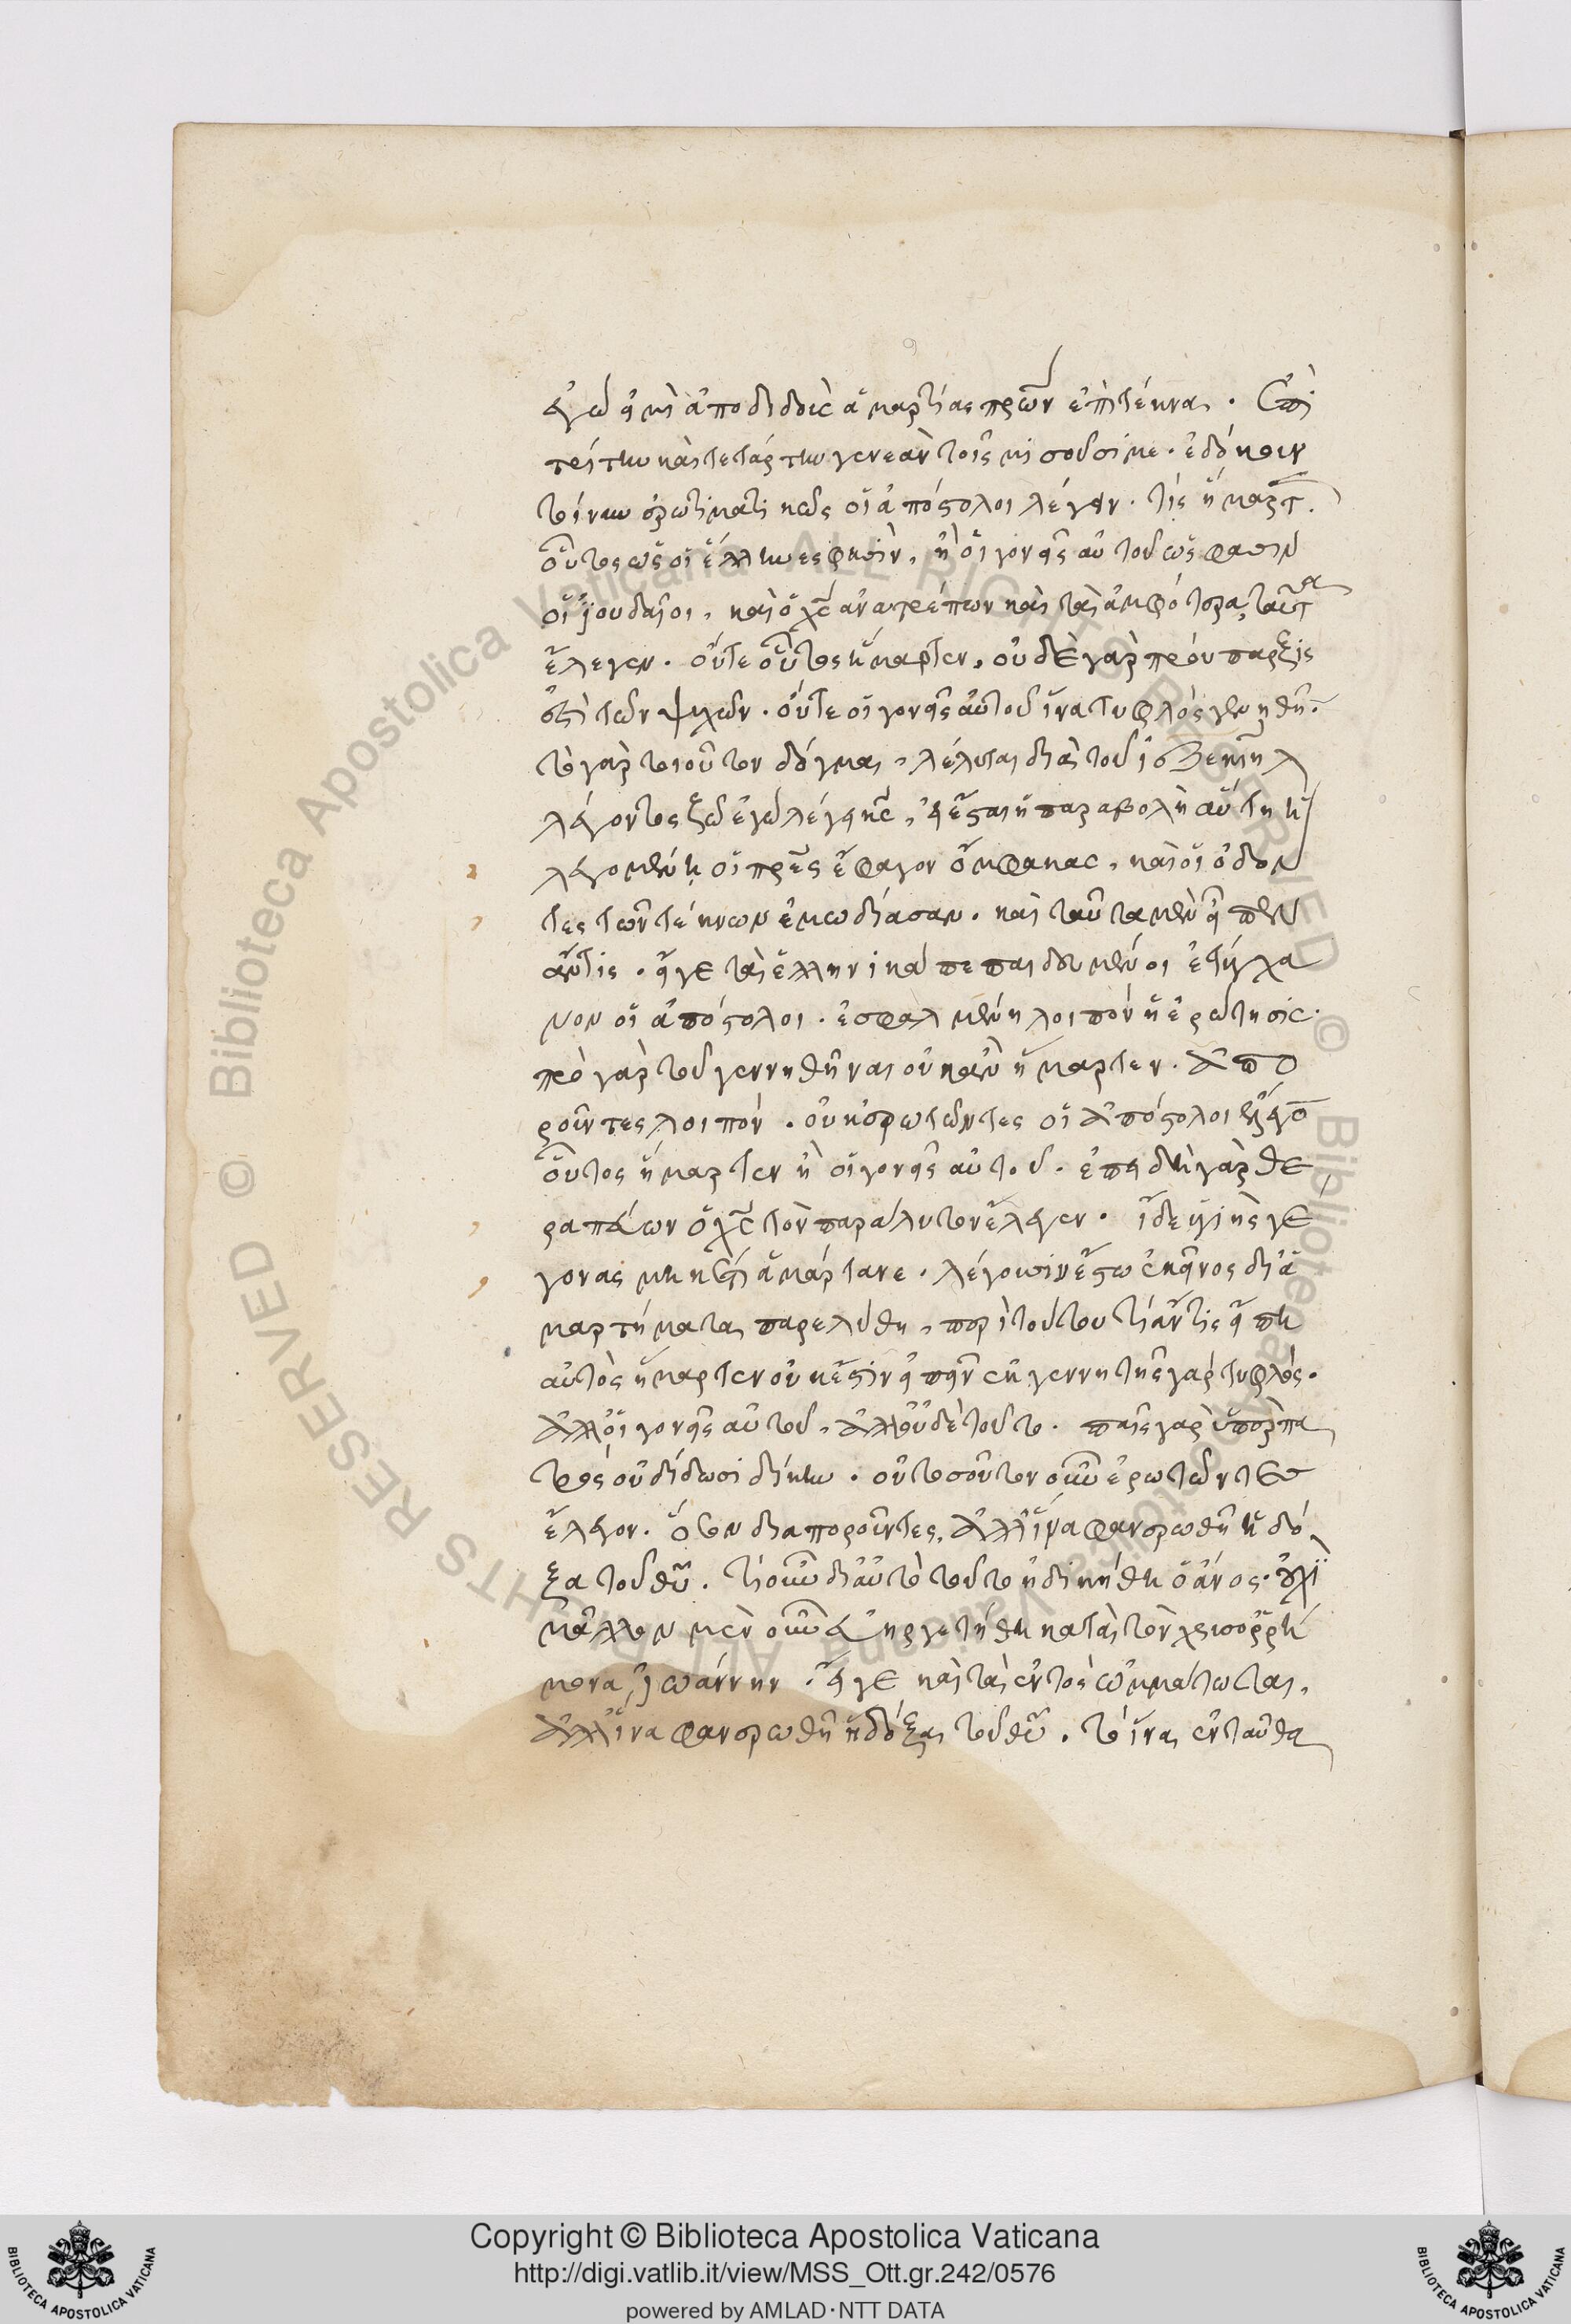 ἐγώ εἰμι ἀποδιδοὺς ἁμαρτίας πρων ἐπὶ τέκνα. ἐπὶ
τρίτην καὶ τετάρτην γενεὰν τοῖς μισοῦσί με. ἐδόκουν
τοίνυν ἐρωτηματικῶς οἱ ἀπόστολοι λέγειν. τίς ἥμαρτ
οὗτος ὡς οἱ ἕλληνες φησὶν, ἢ οἱ γονεῖς αὐτοῦ ὥς φασιν
οἱ ἰουδαῖοι, καὶ ὁ χς ἀνατρέπων καὶ τὰ ἀμφότερα ταῦτα
ἔλεγεν. οὔτε οὗτος ἥμαρτεν, οὐδὲ γὰρ προύπαρξις
ἐστὶ τῶν ψυχῶν. οὔτε οἱ γονεῖς αὐτοῦ ἵνα τυφλὸς γεννηθῆ.
τὸ γὰρ τοιοῦτον δόγμα, λέλυται διὰ τοῦ ἰεζεκιὴλ
λέγοντος ζῶ ἐγὼ λέγει κς, εἰ ἔσται ἡ παραβολὴ αὕτη ἡ
λεγομένη οἱ πρες ἔφαγον ὄμφακας, καὶ οἱ ὀδόν
τες τῶν τέκνων ἐμωδίασαν. καὶ ταῦτα μὲν εἶπεν
ἄν τις. εἴγε τὰ ἑλληνικὰ πεπαιδευμένοι ἐτύγχα
νον οἱ ἀπόστολοι. ἐσφαλμένη λοιπὸν ἡ ἐρώτησις.
πρὸ γὰρ τοῦ γεννηθῆναι οὐκ ἂν ἥμαρτεν. ἀπο
ροῦντες λοιπὸν. οὐκ ἐρωτῶντες οἱ ἀπόστολοι
οὗτος ἥμαρτεν ἢ οἱ γονεῖς αὐτοῦ. ἐπειδὴ γὰρ θε
ραπεύων ὁ χς τὸν παράλυτον ἔλεγεν. ἴδε ὑγιὴς γέ
γονας μηκέτι ἁμάρτανε. λέγουσιν ἔστω ἐκεῖνος δι ἁ
μαρτήματα παρελύθη, περὶ τούτου τί ἄν τις εἴπη
αὐτὸς ἥμαρτεν οὐκ ἔστιν εἰπεῖν ἐκ γεννητῆς γὰρ τυφλός.
ἀλλ οἱ γονεῖς αὐτοῦ, ἀλλ οὐδὲ τοῦτο. παῖς γὰρ ὑπὲρ πα
τρὸς οὐ δίδωσι δίκην. οὔτως οὖν ἐρωτῶντες
ἔλεγον. ὅσον διαποροῦντες, ἀλλ ἵνα φανερωθῆ ἡ δό
ξα τοῦ θυ. τί οὖν δι αὐτὸ τοῦτο ἠδικήθη ὁ ανος. οὐχὶ
μᾶλλον μὲν οὖν εὐηργετήθη κατὰ τὸν χρυσορρή
μονα ἰωάννην. εἴγε καὶ τὰ ἐντὸς ὠμματώσται,
ἀλλ ἵνα φανερωθῆ ἡ δόξα τοῦ θυ. τὸ ἵνα ἐνταῦθα
Copyright © Biblioteca Apostolica Vaticana
http://digi.vatlib.it/view/MSS_Ott.gr.242/0576
powered by AMLAD·NTT DATA